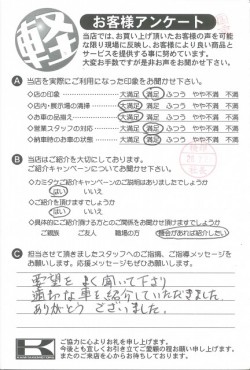 軽
お客様アンケート
当店では、お買い上げ頂いたお客様の声を可能
な限り現場に反映し、お客様により良い商品と
サービスを提供する事に努めています。
大変お手数ですが是非お声をお聞かせ下さい。
A 当店を実際にご利用になった印象をお聞かせ下さい。
◇店の印象 大満足 満足 ふつう やや不満 不満
◇店内・展示場の清掃 大満足 満足 ふつう やや不満 不満
◇お車の品揃え 大満足 満足 ふつう やや不満 不満
◇営業スタッフの対応 大満足 満足 ふつう やや不満 不満
◇納車時のお車の状態 大満足 満足 ふつう やや不満 不満
B 当店はご紹介を大切にしております。
ご紹介キャンペーンについてお聞かせ下さい。
◇カミタケご紹介キャンペーンのご説明はありましたでしょうか
はい いいえ
◇ご紹介を頂けますでしょうか
はい いいえ
◇具体的にご紹介頂ける方とのご関係をお聞かせ頂けますでしょうか
ご親族 ご友人 職場の方 機会があれば紹介したい
C 担当させて頂きましたスタッフへのご指摘、ご指導メッセージを
お願いします。応援メッセージもぜひお願いします。
要望をよく聞いて下り
適切な車を紹介していただきました
ありがとうございました。
K
ご協力に心よりお礼を申し上げます。
今後とも宜しくお引き立てご愛顧の程お願い申し上げます。
またのご来店を心からお待ちしております。